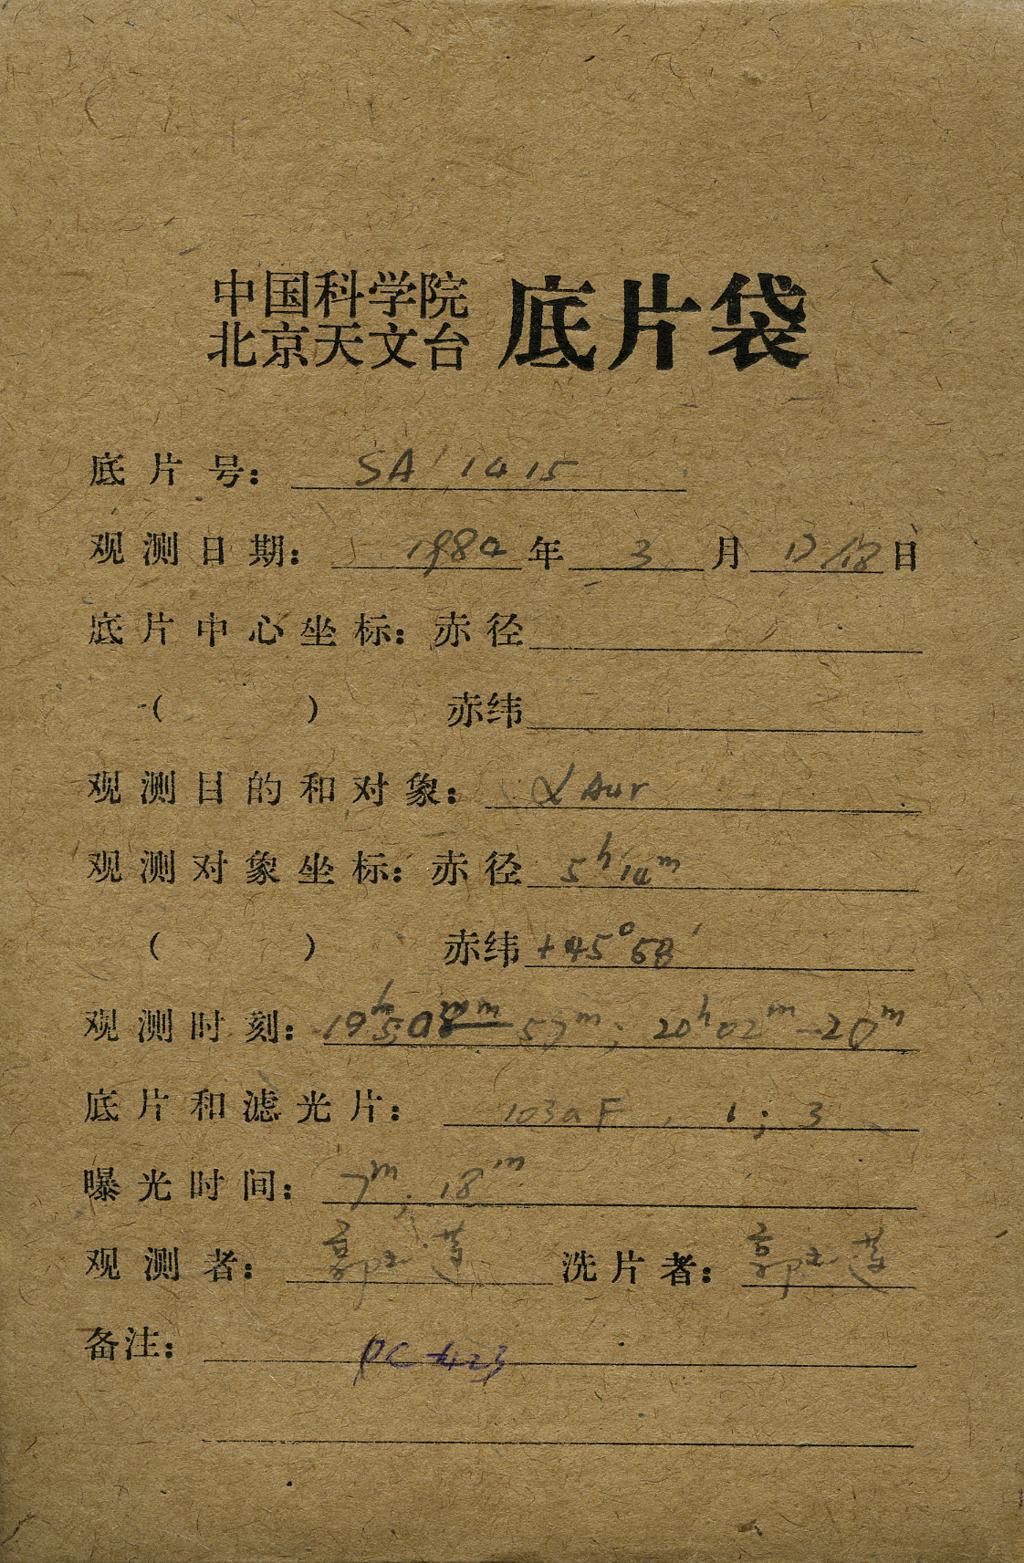 中国科学院
北京天文台 底片袋
底片号: SA 1415
观测日期: 1984年 3月 17/18日
底片中心坐标: 赤径
( ) 赤纬
观测目的和对象: α Aur
观测对象坐标: 赤径 5h14m
( ) 赤纬 +45°58′
观测时刻: 57m; 20h02m-20m
底片和滤光片: 103aF, 1; 3
曝光时间: 7m; 18m
观测者: 郭玉莲 洗片者: 郭玉莲
备注: PC 423